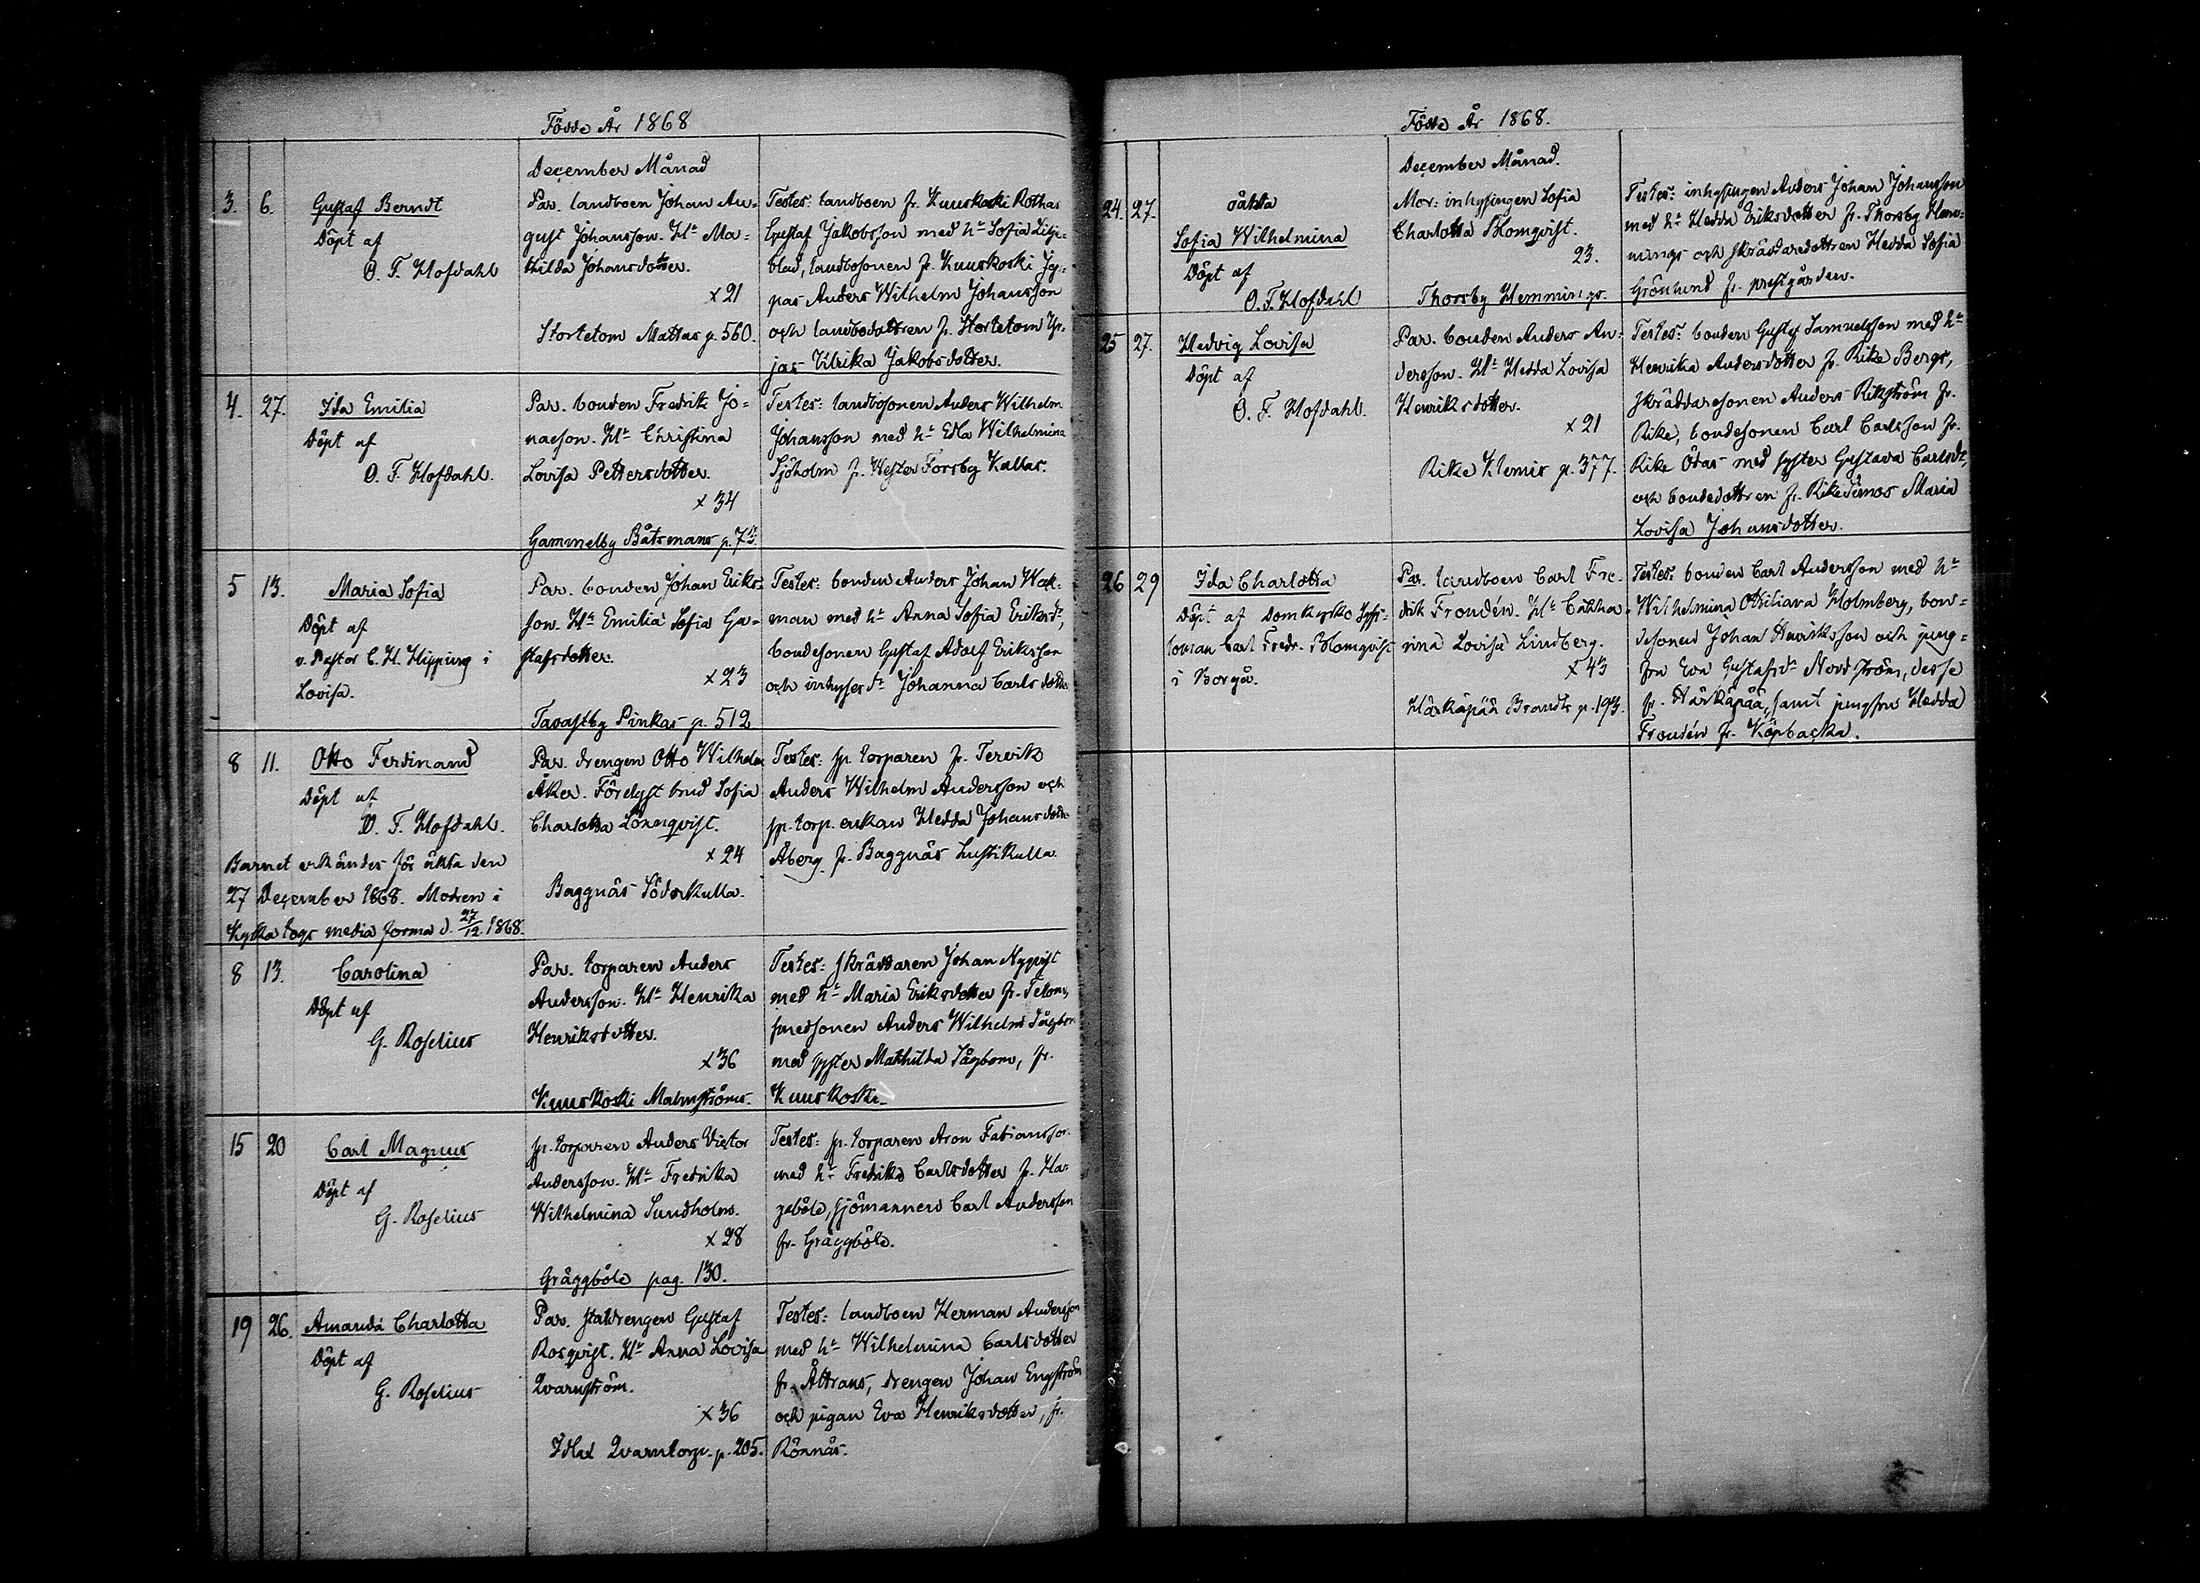 Födde År 1868
December Månad
3. 6. Gustaf Berndt
Döpt af
O. F. Hofdahl
Par. landboen Johan Au-
gust Johansson. H:u Ma-
thilda Johansdotter.
x 21
Stortetom Mattas p. 560.
Testes: landboen fr. Kuuskoski Rothas
Gustaf Jakobsson med h:u Sofia Lilje-
blad, landbosonen fr. Kuuskoski
pas Anders Wilhelm Johansson
och landbodottren fr. Stortetom Yr-
jas Ulrika Jakobsdotter.
4. 27. Ida Emilia
Döpt af
O. F. Hofdahl.
Par. bonden Fredrik Jo-
nasson. H:u Christina
Lovisa Pettersdotter.
x 34
Gammelby Båtsmans p. 73.
Testes: landbosonen Anders Wilhelm
Johansson med h:u Edla Wilhelmina
Sjöholm fr. Wester Forsby Kallas.
5 13. Maria Sofia
Döpt af
v. Pastor C. H. Hipping i
Lovisa.
Par. bonden Johan Eriks-
son. H:u Emilia Sofia Gu-
stafsdotter.
x 23
Tavastby Pinkas p. 512
Testes: bonden Anders Johan Wak-
man med h:u Anna Sofia Eriksdr,
bondesonen Gustaf Adolf Eriksson
och inhysesdr Johanna Carlsdotter
8 11. Otto Ferdinand
Döpt af
O. F. Hofdahl.
Barnet erkändes för äkta den
27 December 1868. Modren i
Kyrka togs media forma d. 27/12 1868.
Par. drengen Otto Wilhelm
Åker. Förelyst brud Sofia
Charlotta Lönnqvist.
x 24
Baggnäs Söderkulla.
Testes: sp. torparen fr. Tervik
Anders Wilhelm Andersson och
sp. torp. enkan Hedda Johansdotter
Åberg fr. Baggnäs Lustikulla
8 13. Carolina
Döpt af
G. Roselius
Par. torparen Anders
Andersson. H:u Henrika
Henriksdotter.
x 36
Kuuskoski Malmströms.
Testes: skräddaren Johan Nyqvist
med h:u Maria Eriksdotter fr. Tetom,
smedsonen Anders Wilhelm Sågbom
med syster Mathilda Sågbom, fr.
Kuuskoski.
15 20 Carl Magnus
Döpt af
G. Roselius
sp. torparen Anders Victor
Andersson. H:u Fredrika
Wilhelmina Sundholm.
x 28
Gräggböle pag. 130.
Testes: sp. torparen Aron Fabiansson
med h:u Fredrika Carlsdotter fr. Ha-
geböle, sjömannen Carl Andersson
fr. Gräggböle.
19 26. Amanda Charlotta
Döpt af
G. Roselius
Par. statdrengen Gustaf
Rosqvist. H:u Anna Lovisa
Qvarnström.
x 36
Qvarntorp. p. 205.
Testes: landboen Herman Andersson
med h:u Wilhelmina Carlsdotter
fr. drengen Johan Engström
och pigan Eva Henriksdotter, fr.
Rönnäs.
Födde År 1868.
December Månad.
24. 27. oäkta
Sofia Wilhelmina
Döpt af
O. F. Hofdahl
Mor: inhysingen Sofia
Charlotta Blomqvist.
23.
Thorsby Hemmings.
Testes: inhysingen Anders Johan Johansson
med h:u Hedda Eriksdotter fr. Thorsby Hem-
mings och skräddaredottren Hedda Sofia
Grönlund fr. prestgården.
25 27. Hedvig Lovisa
Döpt af
O. F. Hofdahl.
Par. bonden Anders An-
dersson. H:u Hedda Lovisa
Henriksdotter.
x 21
Rike Klemis p. 377.
Testes: bonden Gustaf Samuelsson med h:u
Henrika Andersdotter fr. Rike Bergs,
skräddaresonen Anders Rikström fr.
Rike, bondesonen Carl Carlsson fr.
Rike Ödas med syster Gustava Carlsdr,
och bondedottren fr. Rike Simos Maria
Lovisa Johansdotter.
26 29 Ida Charlotta
Döpt af Domkyrko Syss-
loman Carl Fredr. Blomqvist
i Borgå.
Par. landboen Carl Fre-
drik Froudén. H:u Catha-
rina Lovisa Lindberg.
x 43
Härkäpää Brandts p. 193.
Testes: bonden Carl Andersson med h:u
Wilhelmina Ottiliana Holmberg, bon-
desonen Johan Henriksson och jung-
fru Eva Gustafsdr Nordström, desse
fr. Härkäpää, samt jungfru Hedda
Froudén fr. Köpbacka.